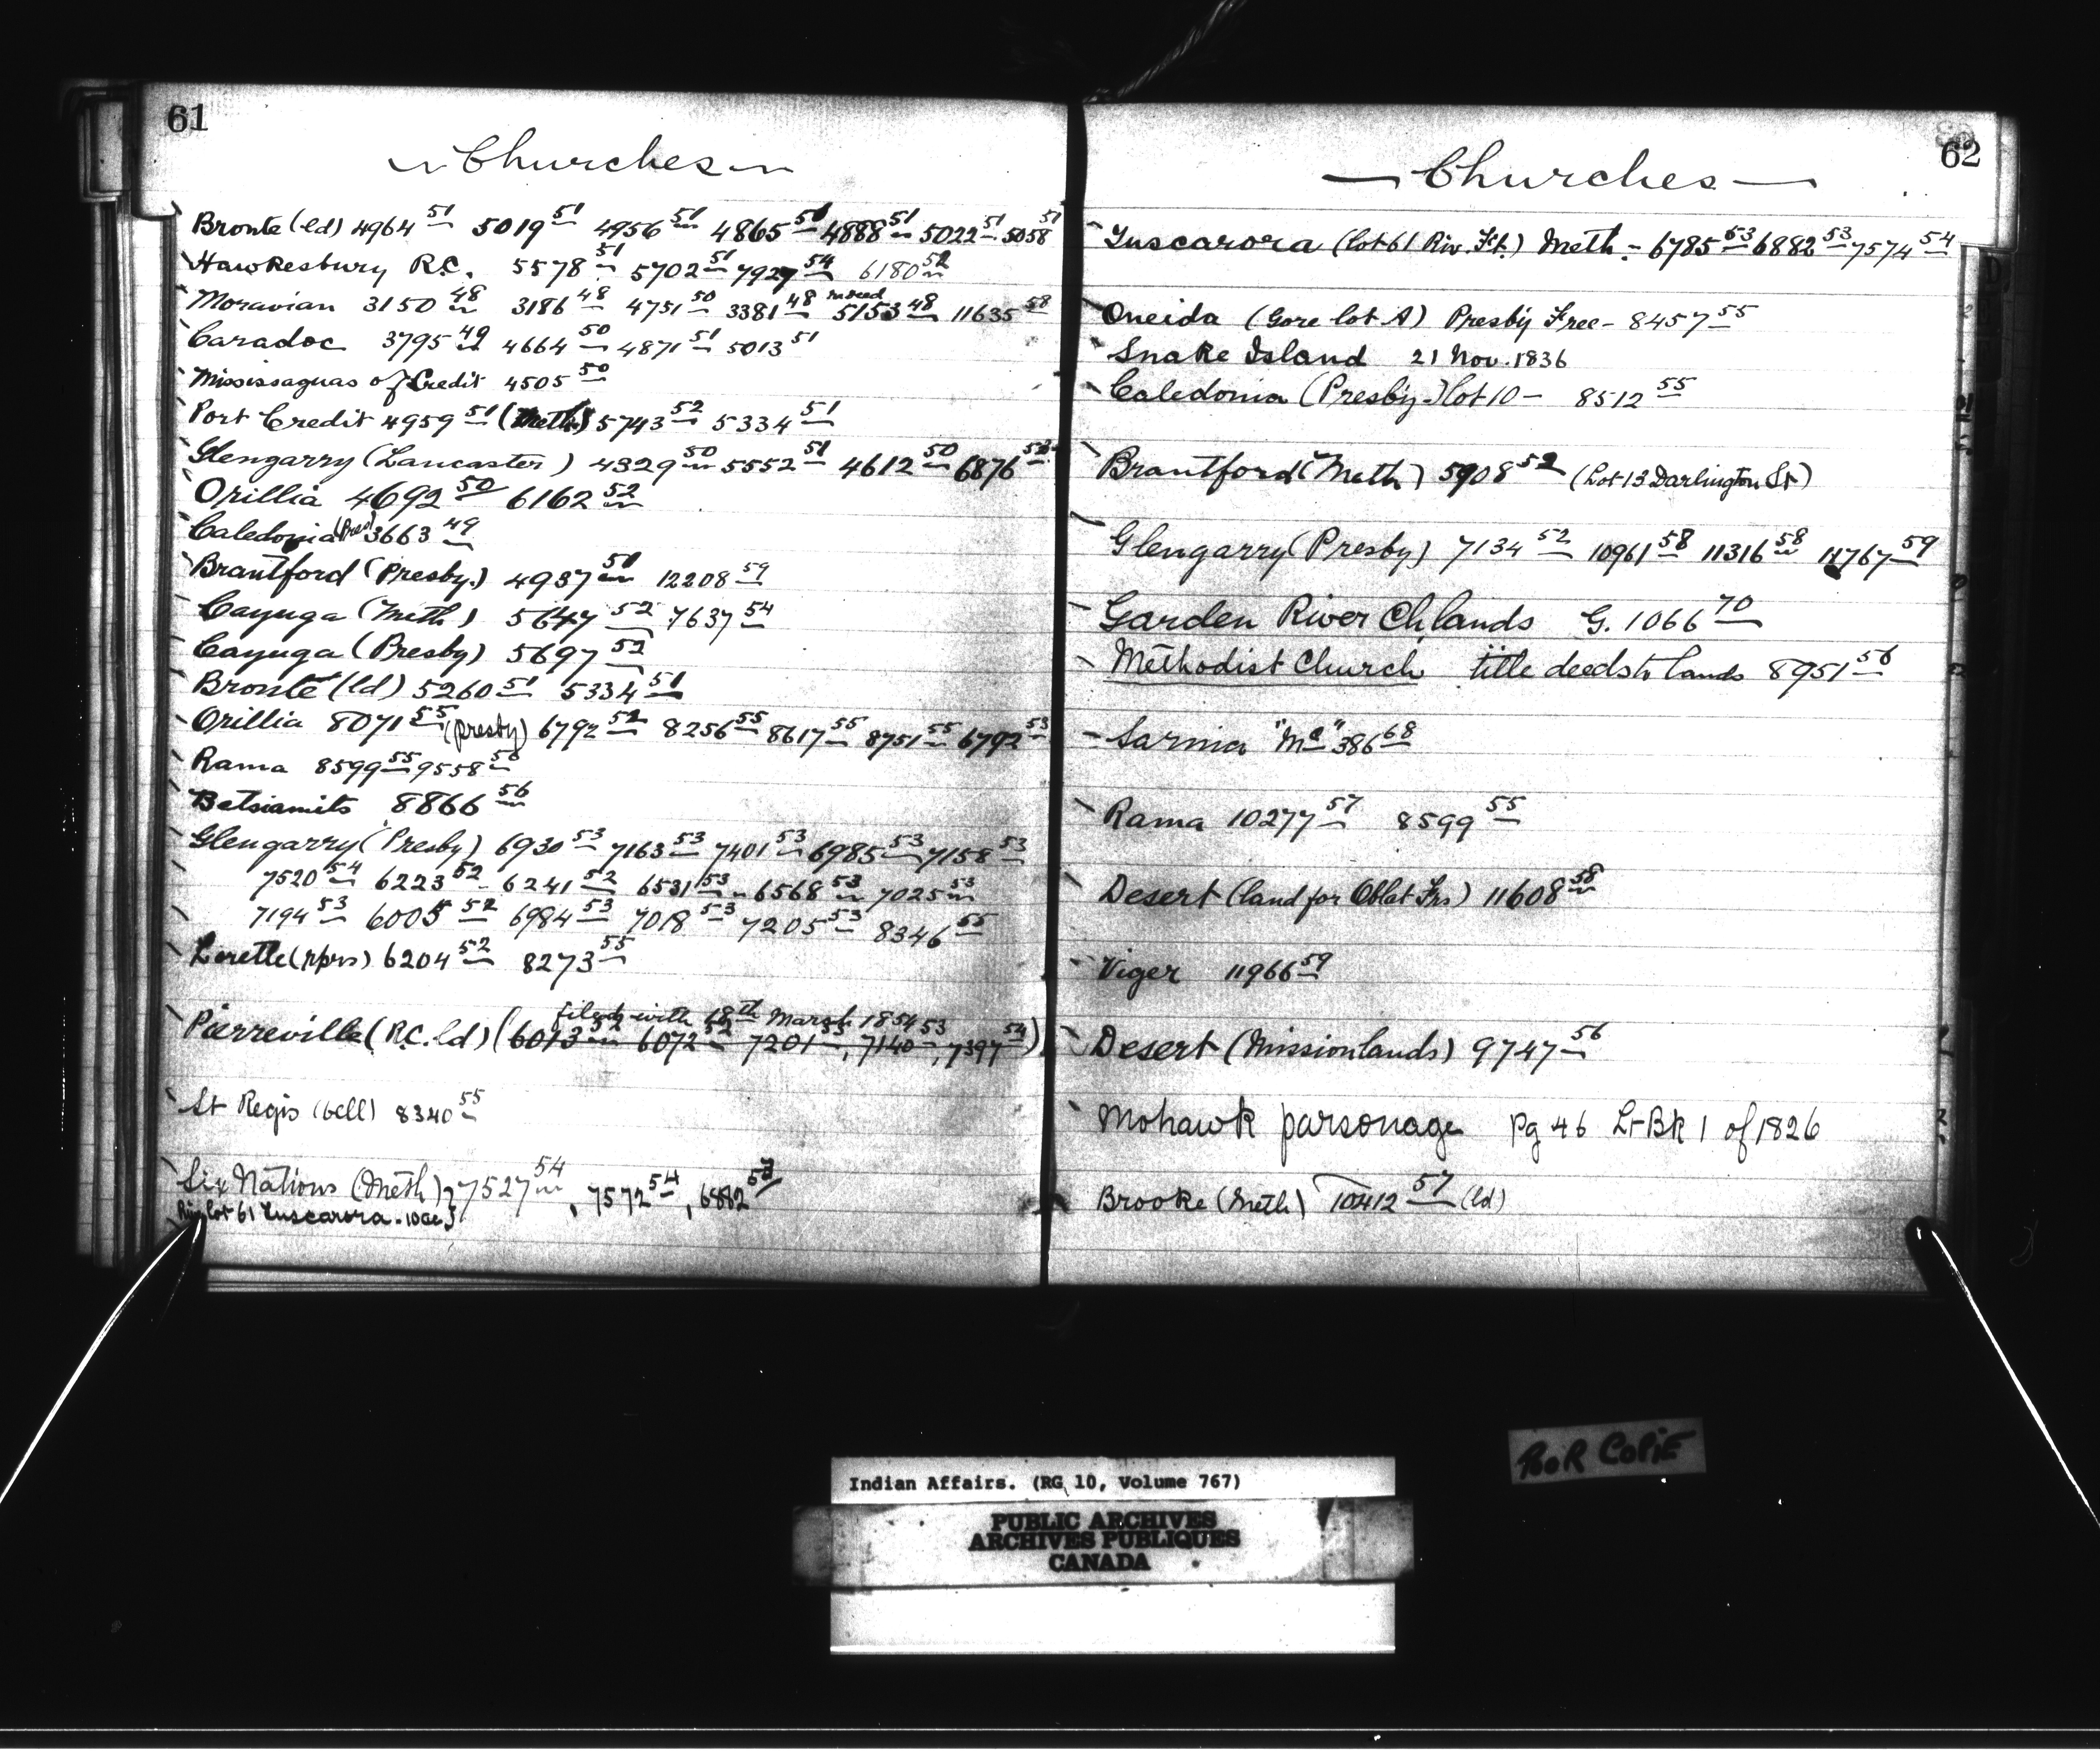 61
Churches
Bronte (ld) 4964 51 5019 51 4956 51 4865 51 4888 51 5022 51 5058 51
Hawkesbury R.C. 5578 51 5702 51 7927 54 6180 52
Moravian 3150 48 3186 48 4751 50 3381 48 5153 48 11635 58
Caradoc 3795 49 4664 50 4871 51 5013 51
Mississaguas of Credit 4505 50
Port Credit 4959 51 (Meth) 5743 52 5334 51
Glengarry (Lancaster) 4329 50 5552 51 4612 50 6876
Orillia 4692 50 6162 52
Caledonia (Pres) 3663 49
Brantford (Presby.) 4937 51 12208 59
Cayuga (Meth) 5647 52 7637 54
Cayuga (Presby) 5697 52
Bronte (ld) 5260 51 5334 51
Orillia 8071 55 (presby) 6792 52 8256 55 8617 55 8751 55 6792 53
Rama 8599 55 9558 56
Betsiamits 8866 56
Glengarry (Presby) 6930 53 7163 53 7401 53 6985 53 7158 53
7520 54 6223 52 6241 52 6531 53 6568 53 7025 53
7194 53 6005 52 6984 53 7018 53 7205 53 8346 55
Lorette (rprs) 6204 52 8273 55
filed with 18th March 1854
Pierreville (R.C. ld) (6013 52 6072 52 7201 53, 7140 53, 7397 54)
St Regis (bell) 8340 55
Six Nations (Meth) 7527 54, 7572 54, 6882
Riv lot 61 Tuscarora - 10 ac
62
Churches
Tuscarora (lot 61 Riv. Ft.) Meth - 6785 53 6882 53 7574 54
Oneida (Gore lot A) Presby Free - 8457 55
Snake Island 21 Nov. 1836
Caledonia (Presby.) lot 10 - 8512 55
Brantford (Meth) 5908 52 (Lot 13 Darlington St)
Glengarry (Presby) 7134 52 10961 58 11316 58 11767 59
Garden River Ch lands G. 1066 70
Methodist Church title deeds to lands 8951 56
Sarnia "Mc" 386 68
Rama 10277 57 8599 55
Desert (land for Oblat Frs) 11608 58
Viger 11966 59
Desert (Mission lands) 9747 56
Mohawk parsonage Pg 46 Lt Bk 1 of 1826
Brooke (Meth) 10412 57 (ld)
POOR COPIE
Indian Affairs. (RG 10, Volume 767)
PUBLIC ARCHIVES
ARCHIVES PUBLIQUES
CANADA